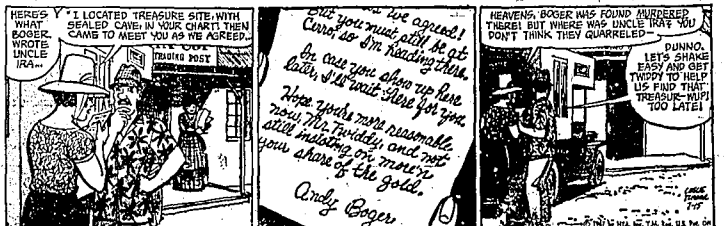 HERE'S
WHAT
BOGER
WROTE
UNCLE
IRA...
"I LOCATED TREASURE SITE, WITH
SEALED CAVE, IN YOUR CHART! THEN
CAME TO MEET YOU AS WE AGREED...
TRADING POST
as we agreed!
But you must still be at
Cerro, so I'm heading there.
In case you show up here
later, I'll wait there for you.
Hope you're more reasonable
now, Mr. Twiddy, and not
still insisting on more'n
your share of the gold.
Andy Boger
HEAVENS, BOGER WAS FOUND MURDERED
THERE! BUT WHERE WAS UNCLE IRA? YOU
DON'T THINK THEY QUARRELED—
DUNNO.
LET'S SHAKE
EASY AND GET
TWIDDY TO HELP
US FIND THAT
TREASUR-WUP!
TOO LATE!
LESLIE
TURNER
7-15